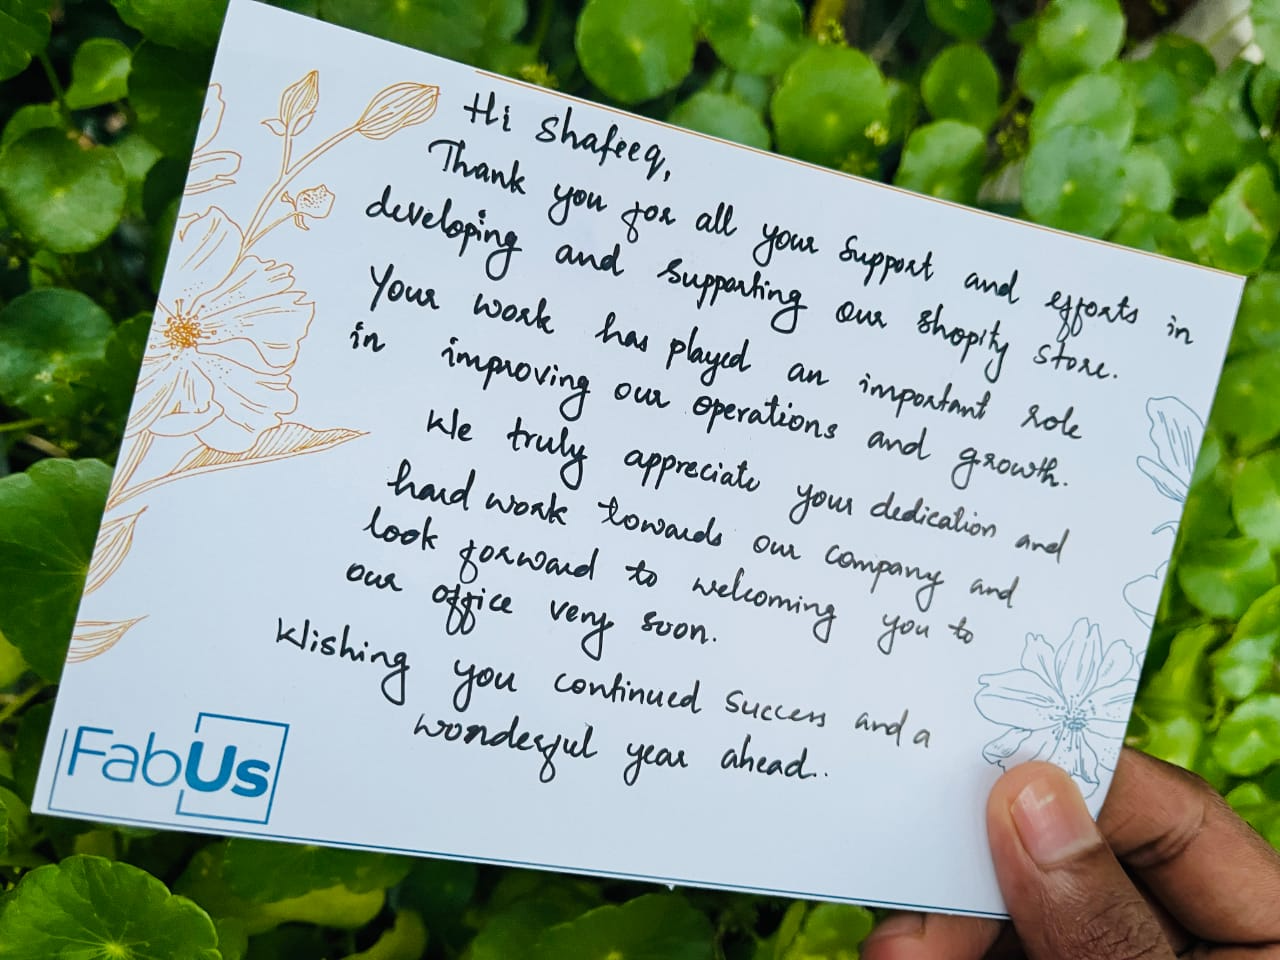 Hi Shafeeq,
Thank you for all your support and efforts in
developing and supporting our shopify store.
Your work has played an important role
in improving our operations and growth.
We truly appreciate your dedication and
hard work towards our company and
look forward to welcoming you to
our office very soon.
Wishing you continued success and a
wonderful year ahead..
FabUs